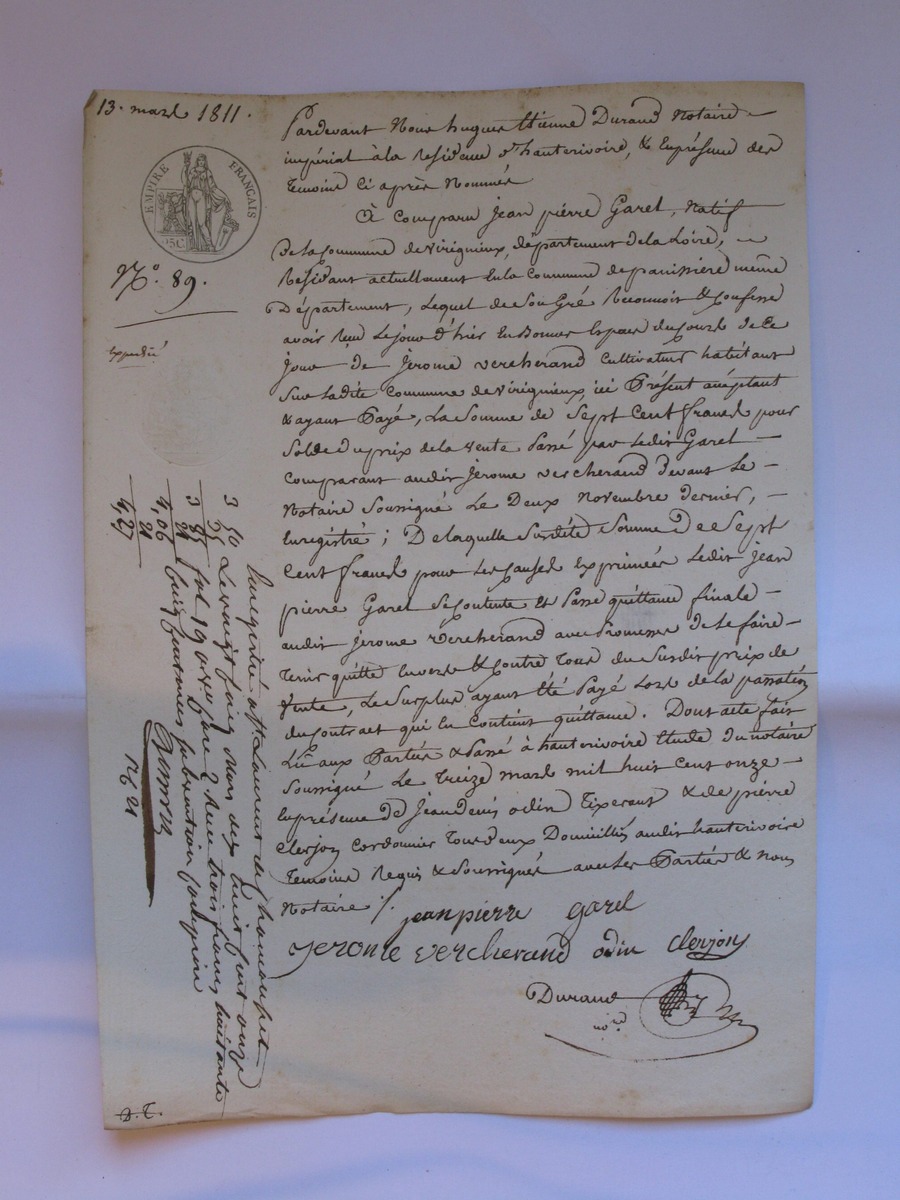 13. mars 1811.
EMPIRE FRANÇAIS
25 C.
N.o 89.
Expedié
Pardevant Nous hugues Etienne Durand Notaire
impérial à la Residence d'hauterivoire, & En présence des
Temoins Ci après Nommés
A Comparu Jean pierre Garel, Natif
De la Commune de virigneux, département de la Loire,
Residant actuellement En la Commune de panissiere même
Département, Lequel de Son Gré Reconnoit & Confesse
avoir Reçu Le jour d'hier En Bonnes Espaces du Cours de Ce
jour de Jerome vercherand Cultivateur habitant
Sur Ladite Commune de virigneux, ici Présent acceptant
& ayant Payé, La Somme de Sept Cent francs pour
Solde du prix de la vente Passé par Ledit Garel
Comparant audit Jerome vercherand Devant Le
Notaire Soussigné Le Deux Novembre Dernier,
Enregistré ; De laquelle Susdite Somme De Sept
Cent francs pour Les Causes Exprimées Ledit Jean
pierre Garel Se Contente Et Passe quittance finale
audit Jerome vercherand avec Promesse De le faire
Tenir quitte Envers & Contre Tous du Susdit prix de
Vente, Le Surplus ayant Eté Payé Lors de la passation
du Contrat qui En Contient quittance. Dont acte fait
Lu aux Parties & Passé à hauterivoire Etude du notaire
Soussigné Le Treize mars mil huit Cent onze
En présence de Jean Denis odin Tixerant & de pierre
Clerjon Cordonnier Tous deux Domiciliés audit hauterivoire
Temoins Requis & Soussignés avec Les Parties & nous
Notaire ./.
jean pierre garel
Jerome vercherand odin Clerjon
Durand
no.re
Enregistré à St Laurent de chamousset
Le vingt cinq Mars dix huit Cent onze
fol. 19 Reçu trois francs huitante
Cinq Centimes Subvention Comprise
3 50
35
3 85
21
4,06
21
4,27
D. T.